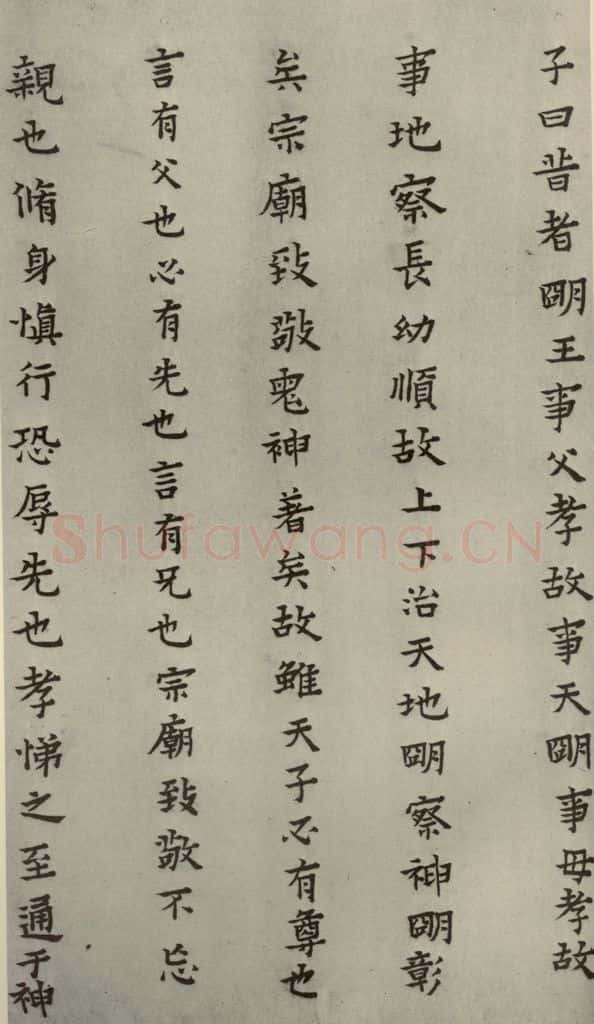 子曰昔者明王事父孝故事天明事母孝故
事地察長幼順故上下治天地明察神明彰
矣宗廟致敬鬼神著矣故雖天子必有尊也
言有父也必有先也言有兄也宗廟致敬不忘
親也脩身慎行恐辱先也孝悌之至通于神
Shufawang.CN